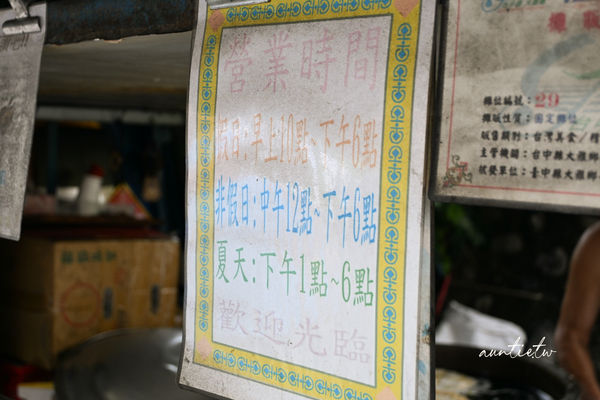 營業時間
假日:早上10點~下午6點
非假日:中午12點~下午6點
夏天:下午1點~6點
歡迎光臨
攤位編號:29
攤販性質:固定攤位
販售類別:台灣美食/
主管機關:台中縣大雅鄉
核發單位:臺中縣大雅鄉
auntietw